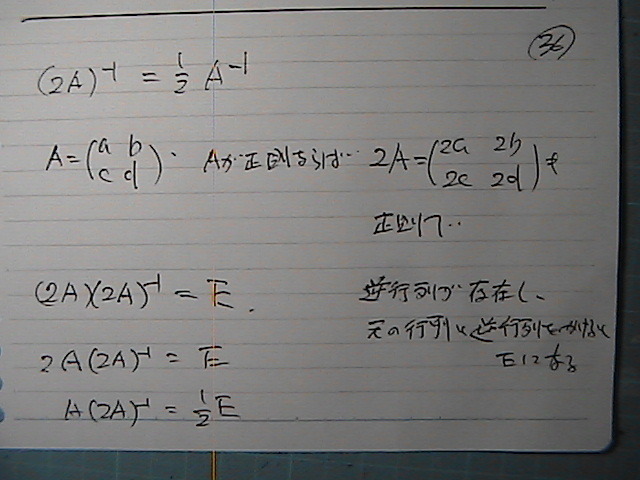 (36)
(2A)⁻¹ = 1/2 A⁻¹
A = (a b
c d). Aが正則ならば… 2A = (2a 2b
2c 2d)も
正則で…
(2A)(2A)⁻¹ = E. 逆行列が存在し、
元の行列と逆行列をかけると
2A(2A)⁻¹ = E Eになる
A(2A)⁻¹ = 1/2 E